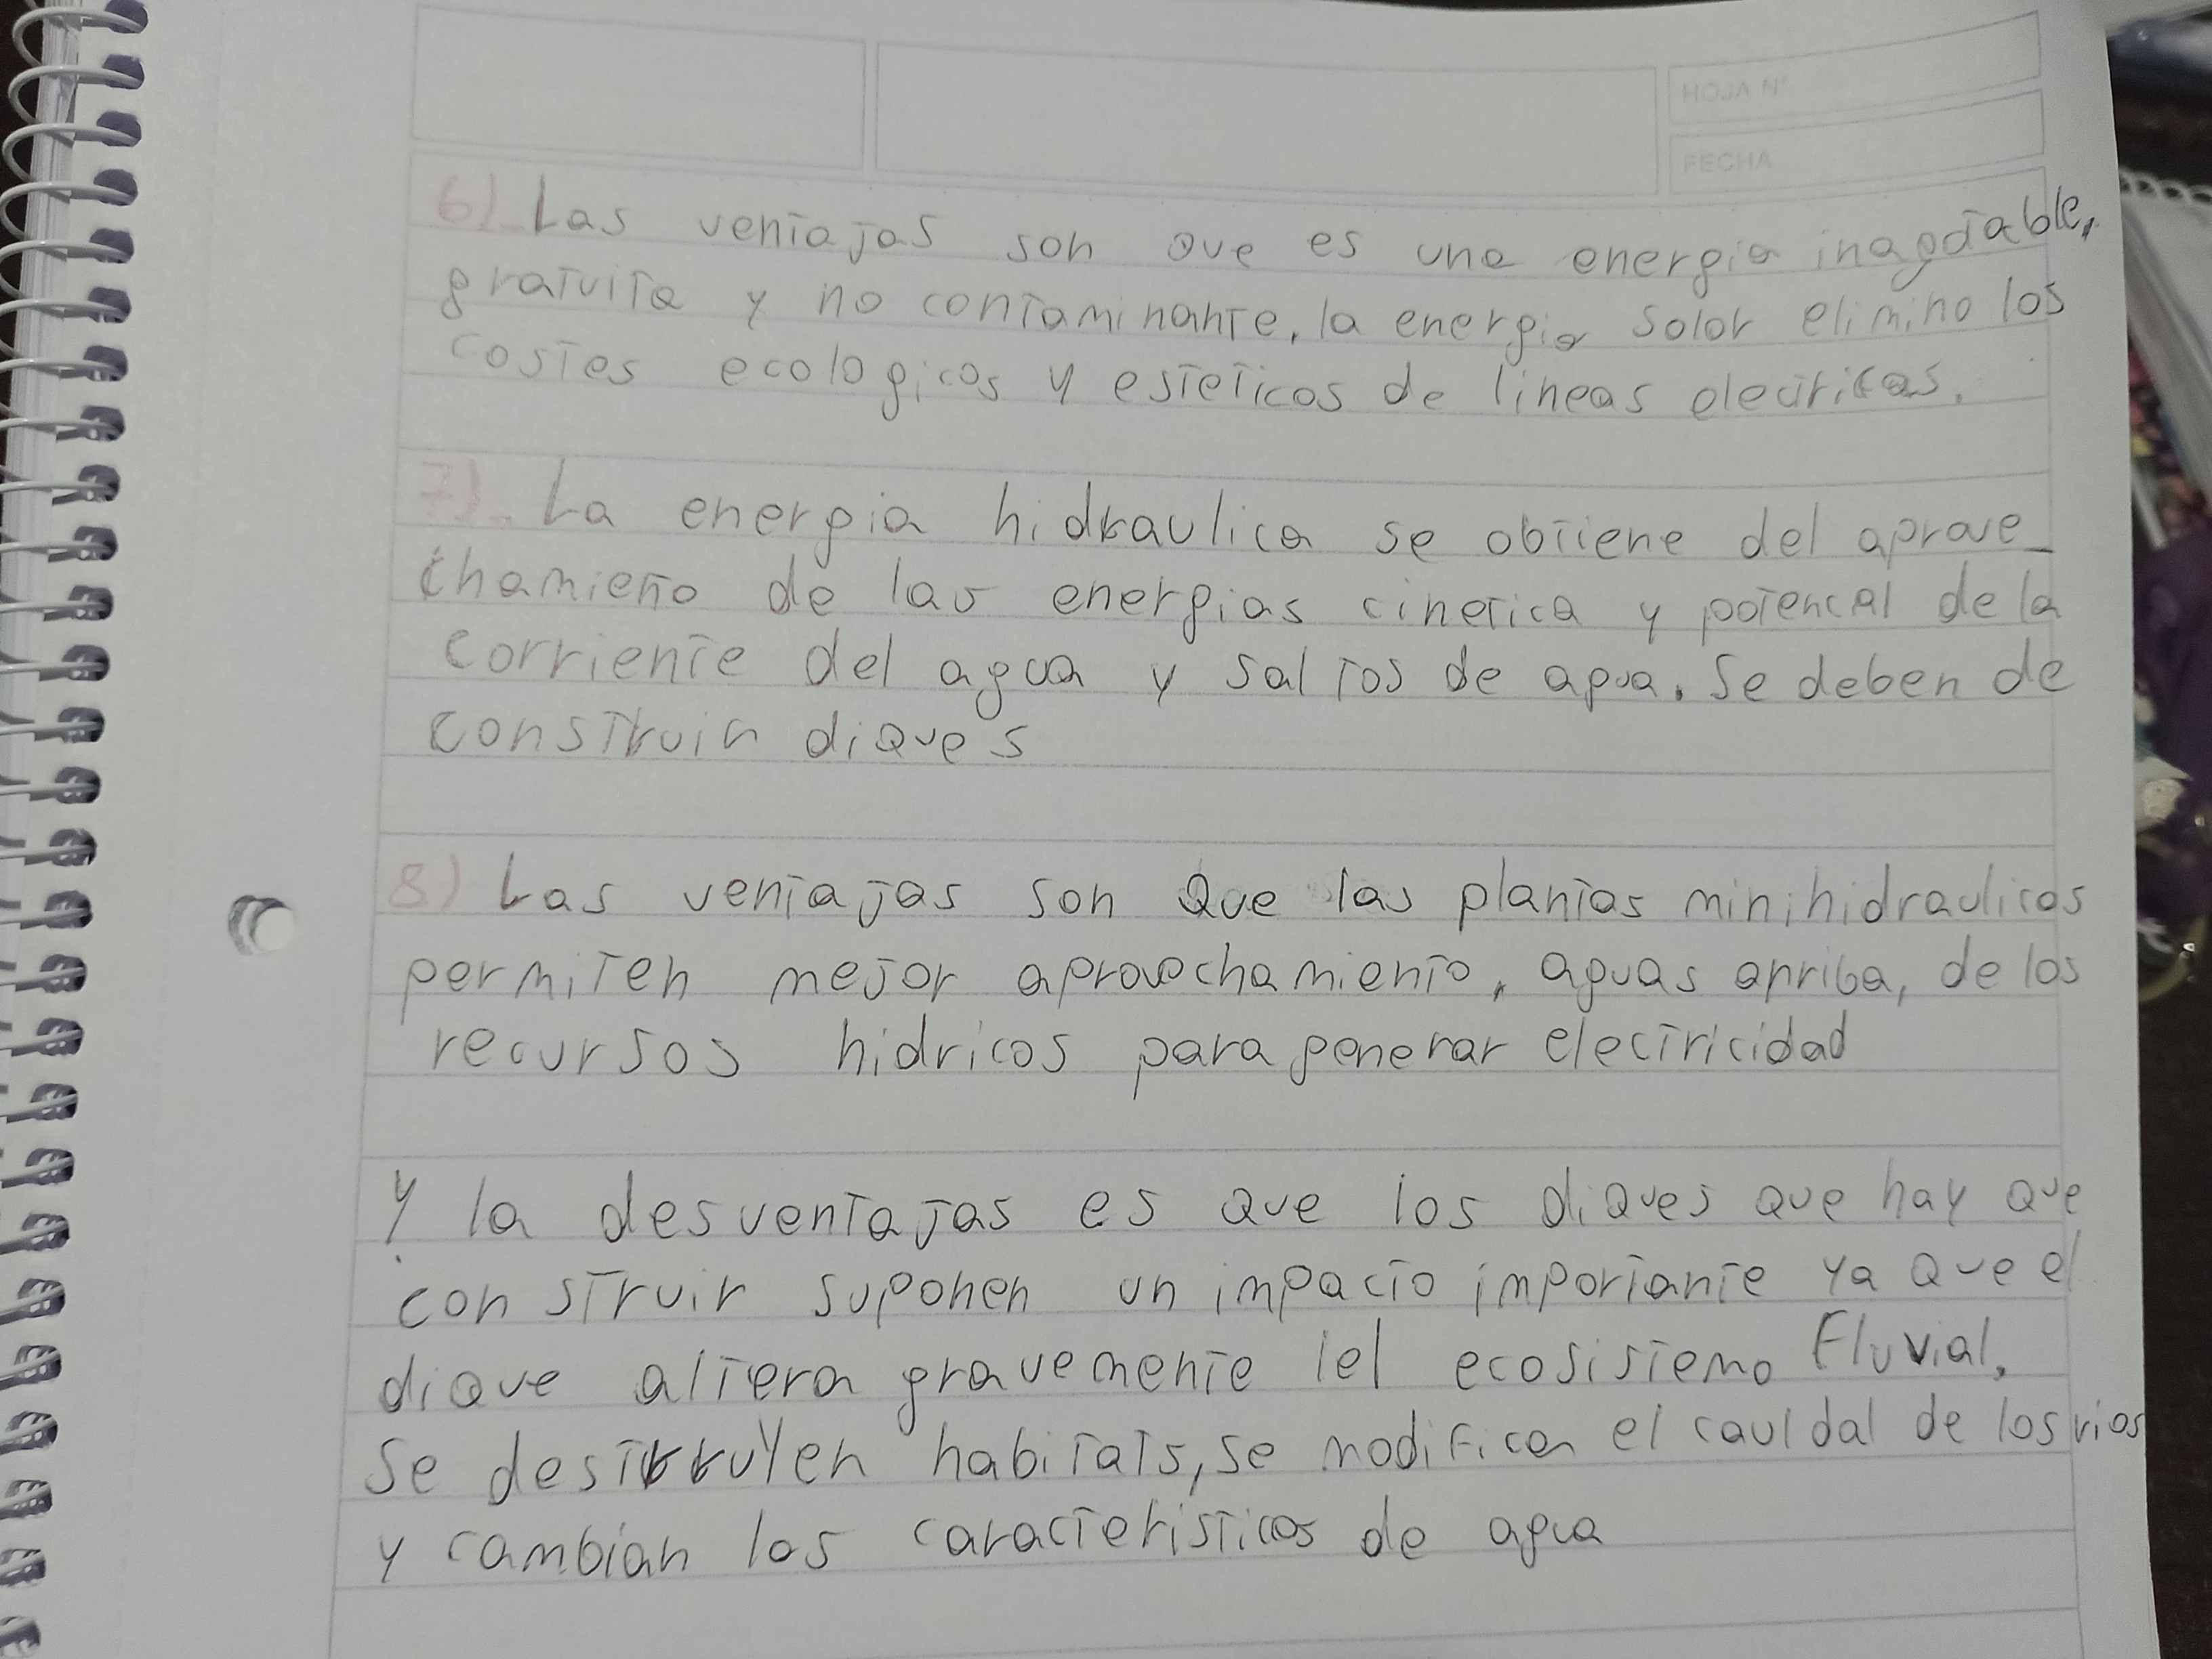 HOJA N°
FECHA
6) Las ventajas son que es una energia inagotable,
gratuita y no contaminante, la energia solar elimino los
costes ecologicos y esteticos de lineas electricas.
7). La energia hidraulica se obtiene del aprove_
chamieno de las energias cinetica y potencal de la
corriente del agua y saltos de agua. Se deben de
construir diques
8) Las ventajas son que las plantas minihidraulicas
permiten mejor aprovechamiento, aguas apriba, de los
recursos hidricos para generar electricidad
y la desventajas es que los diques que hay que
construir suponen un impacto importante ya que el
dique altera gravemente lel ecosistema fluvial,
se destrruyen habitats, se modifican el cauldal de los rios
y cambian las caracteristicas de agua